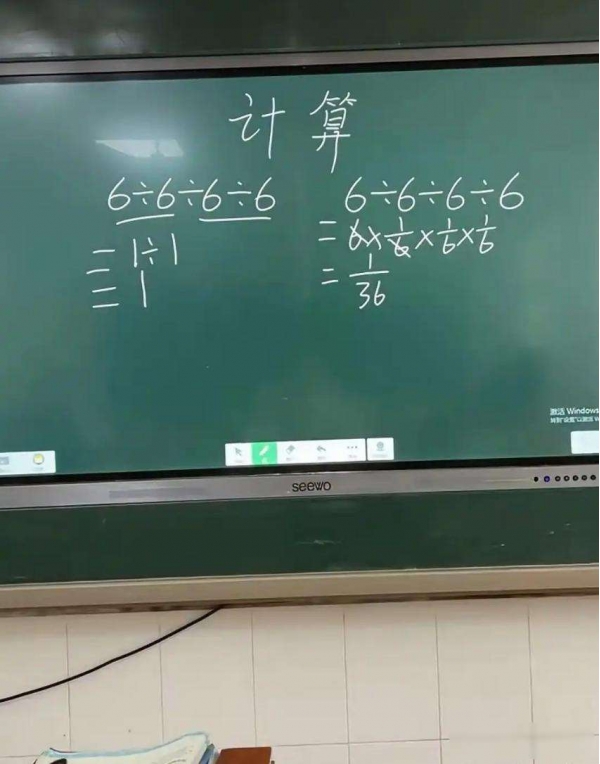 计算
6÷6÷6÷6
=1÷1
=1
6÷6÷6÷6
=6×1/6×1/6×1/6
=1/36
激活 Windows
seewo